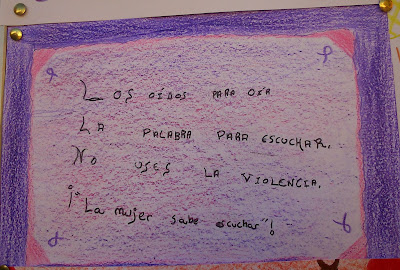 Los oídos para oír
La palabra para escuchar.
No uses la violencia.
¡"La mujer sabe escuchar"!